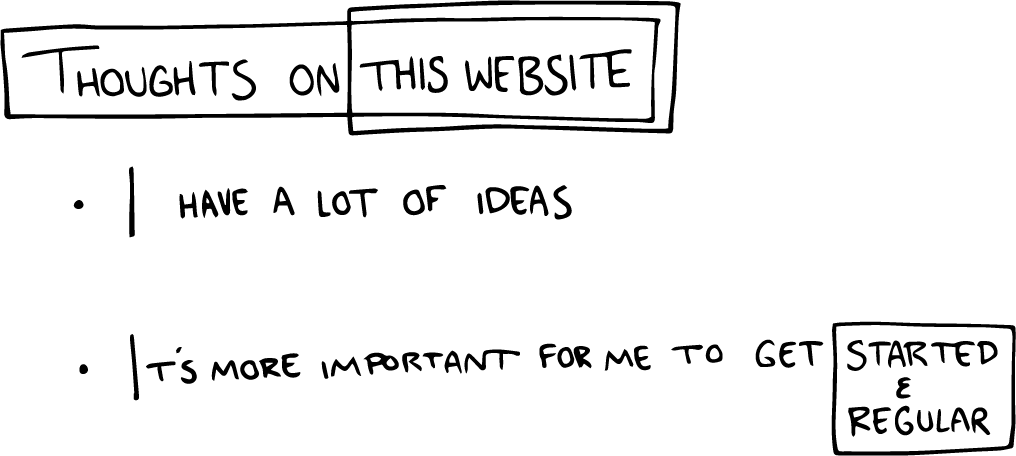 THOUGHTS ON THIS WEBSITE
• I HAVE A LOT OF IDEAS
• IT'S MORE IMPORTANT FOR ME TO GET STARTED
&
REGULAR